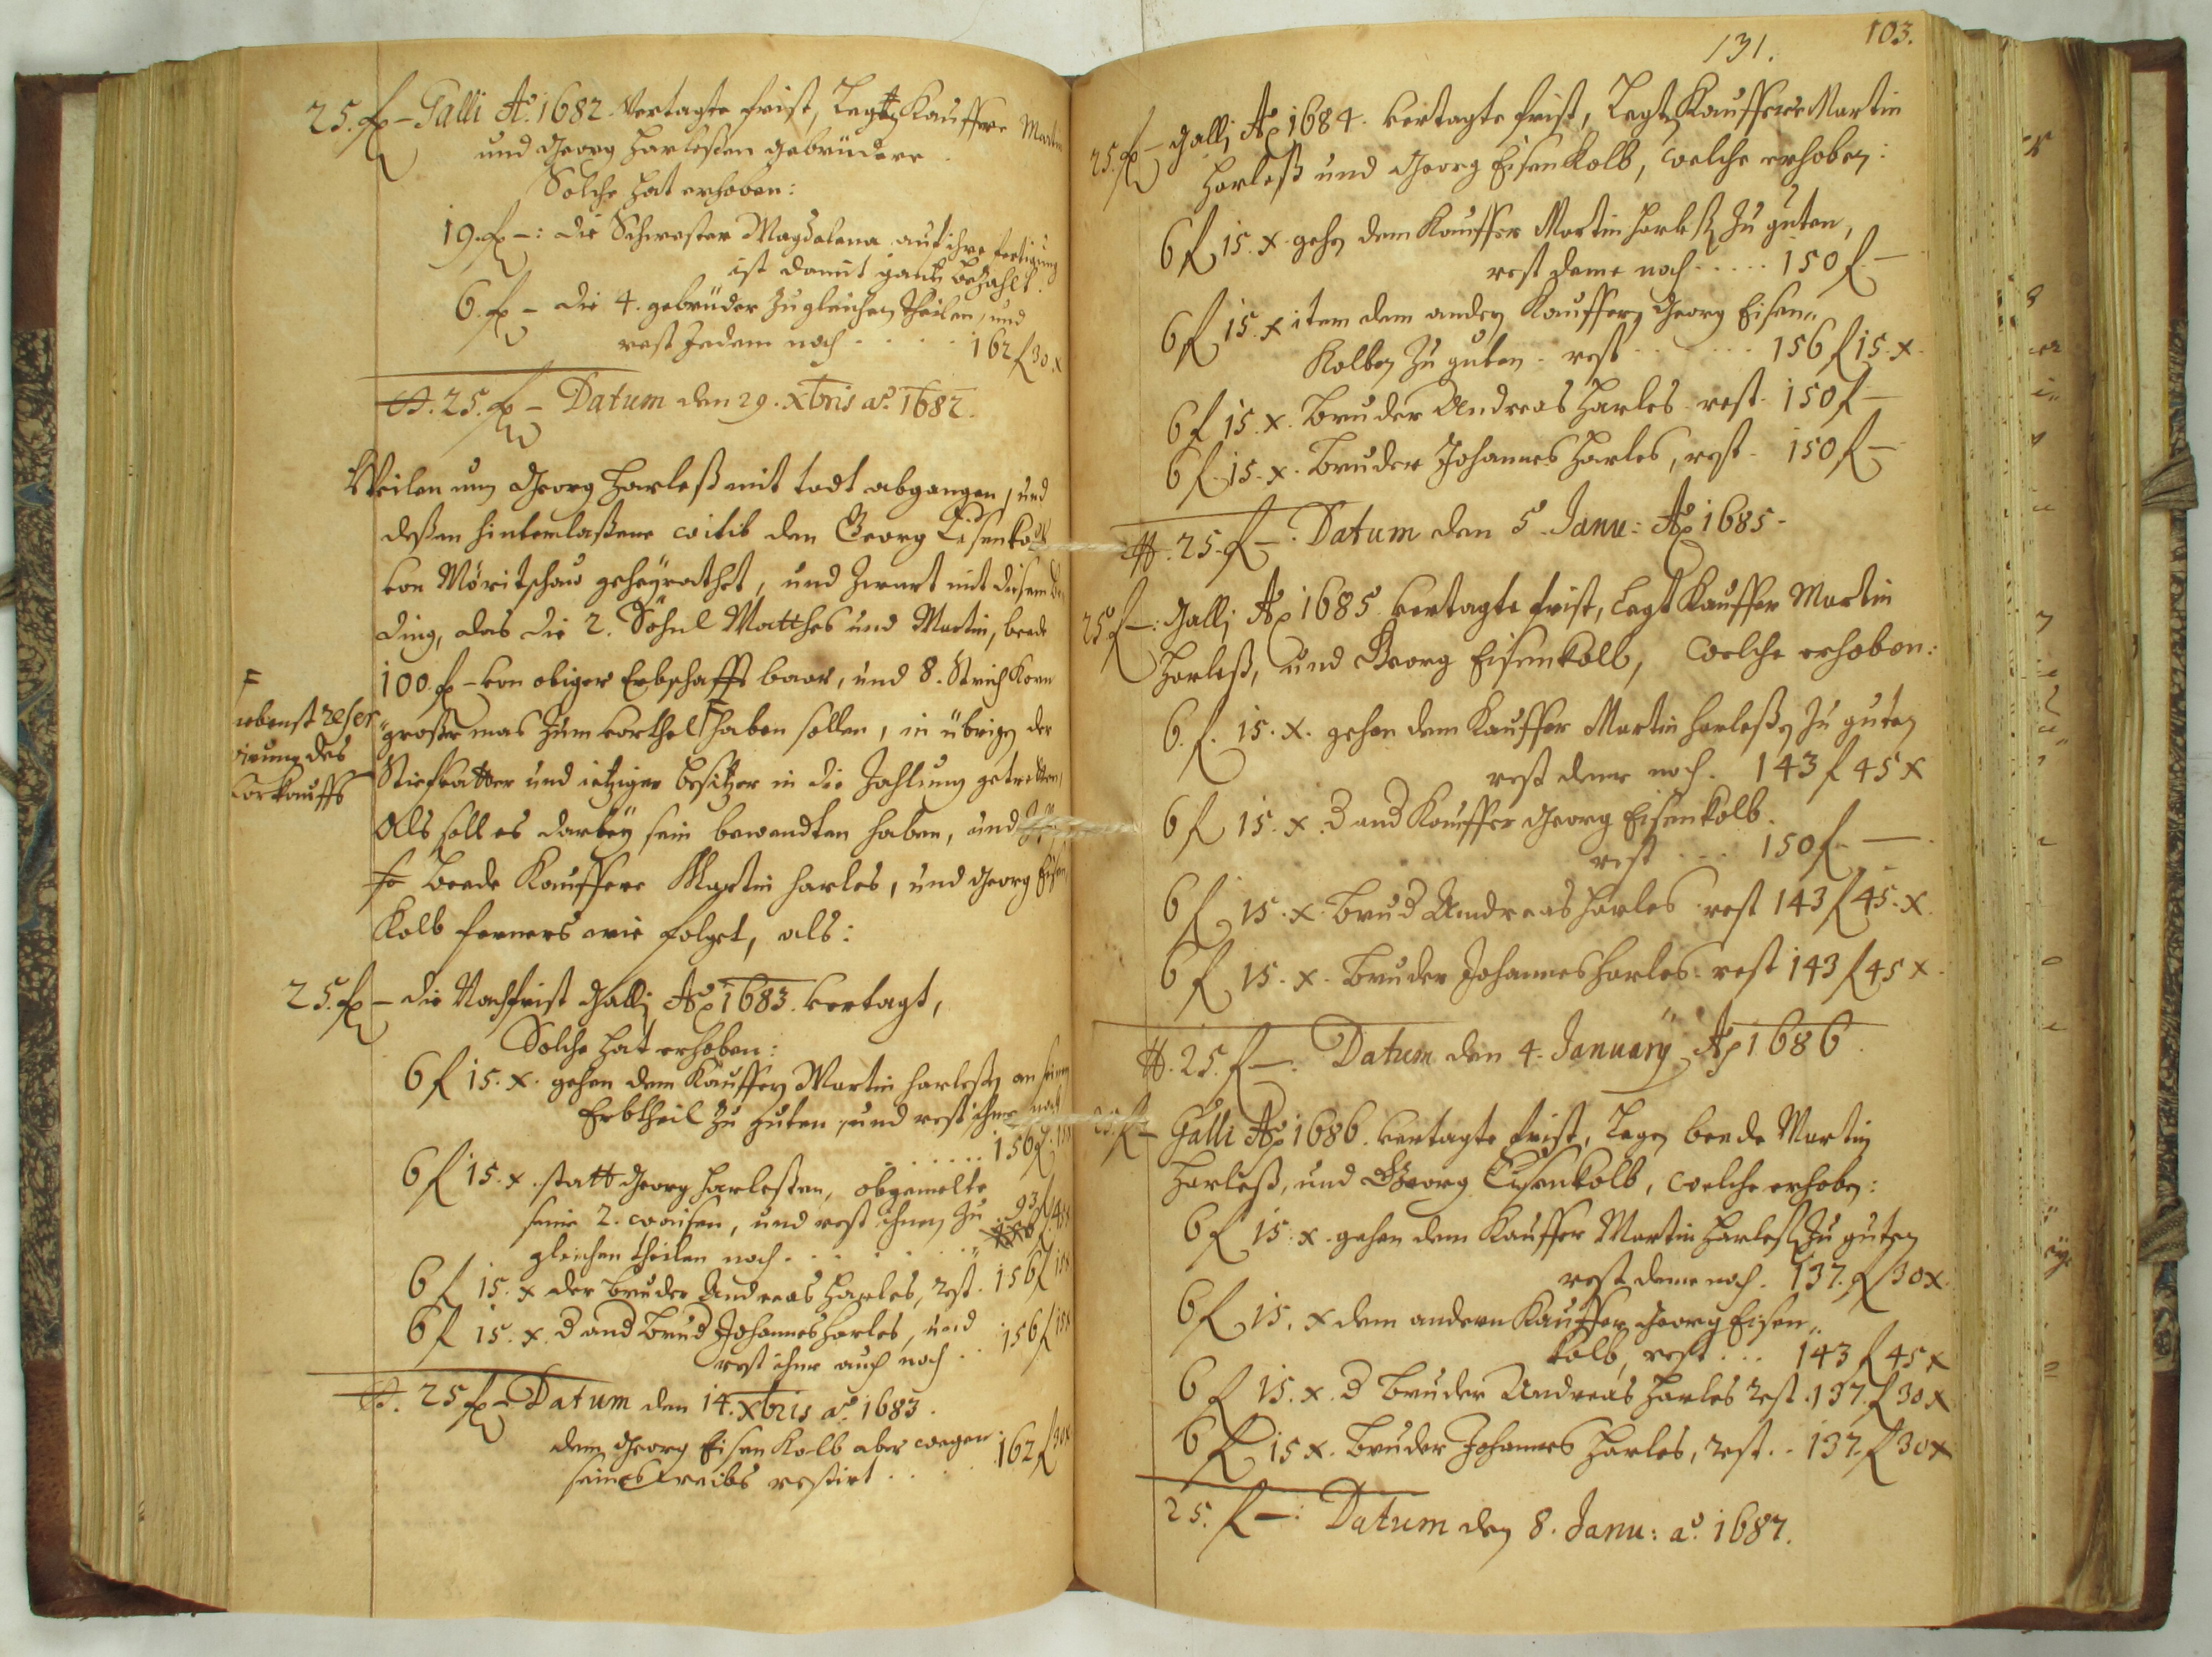 25. f – Galli Aõ. 1682. Vertagte frist, Legt Kauffere Martin
und Georg Harleßen gebrüdere.
Solche hat erhoben:
19. f –: die Schwester Magdalena auf ihre fertigung
ist damit gantz bezahlt.
6. f – die 4. gebrüder zu gleichen theilen, und
rest Jedem noch . . . . 162 f 30 x
St. 25. f – Datum den 29. Xbris aõ. 1682.
Weilen nun Georg Harleß mit todt abgangen, und
deßen hinterlaßene witib den Georg Eisenkolb
von Möritschau geheyrathet, und zwart mit diesem
ding, das die 2. Söhnl Matthes und Martin, beede
100. f – von obiger Erbschafft baar, und 8. Strich Korn
großer mas zum vorthel F haben sollen, in übrigen der
F
nebenst reser
virung des
Vorkauffs
Stiefvatter und ietziger besitzer in die Zahlung getretten,
Als soll es darbey sein bewendten haben, und
beede Kauffere Martin Harles, und Georg Eisen
Kolb ferners wie folget, als:
25. f – die Nachfrist Galli Aõ 1683. vertagt,
Solche hat erhoben:
6 f 15. x. gehen dem Kauffer Martin Harleßen an seinem
Erbtheil zu guten, und rest ihme noch
. . . . . . 156 f 15 x
6 f 15. x. statt Georg Harleßen, obgemelte
seine 2. waisen, und rest ihnen zu 93 f 45 x
gleichen theilen noch . . . . . .
6 f 15. x der bruder Andreas Harles, rest. 156 f 15 x
6 f 15. x. d and Brud Johannes Harles, und
rest ihme auch noch . . 156 f 15 x
St. 25 f – Datum den 14. Xbris aõ. 1683.
dem Georg Eisen Kolb aber wegen
seines weibs restirt . . . . 162 f 30 x
131.
103.
25. f – Galli Aõ 1684. vertagte frist, Legt Kauffere Martin
Harleß und Georg Eisenkolb, welche erhoben:
6 f 15. x. gehen dem Kauffer Martin Harleß zu guten,
rest deme noch . . . . . 150 f –
6 f 15. x item dem andern Kauffern Georg Eisen„
Kolben zu guten. rest . . . . . . 156 f 15. x.
6 f 15. x. Bruder Andreas Harles. rest. 150 f –
6 f 15. x. Bruder Johannes Harles, rest. 150 f –
St. 25. f –. Datum den 5. Janu: Aõ 1685.
25 f –: Galli Aõ 1685. vertagte frist, Legt Kauffer Martin
Harleß, und Georg Eisenkolb, welche erhoben:
6. f. 15. x. gehen dem Kauffer Martin Harleßen zu guten
rest deme noch. 143 f 45 x
6 f 15. x. d and Kauffer Georg Eisenkolb.
rest . . . 150 f. –.
6 f 15. x. Brud Andreas Harles. rest 143 f 45. x.
6 f 15. x. Bruder Johannes Harles. rest 143 f 45 x.
St. 25. f –. Datum den 4. January Aõ 1686.
25. f – Galli Aõ 1686. vertagte frist, Legen beede Martin
Harleß, und Georg Eisenkolb, welche erhoben:
6 f 15. x. gehen dem Kauffer Martin Harleß zu guten
rest deme noch. 137. f 30 x.
6 f 15. x dem andern Kauffer Georg Eisen„
kolb, rest . . . 143 f 45 x
6 f 15. x. d Bruder Andreas Harles rest. 137. f 30 x
6 f 15 x. Bruder Johannes Harles, rest. . 137. f 30 x
25. f –: Datum den 8. Janu: aõ. 1687.